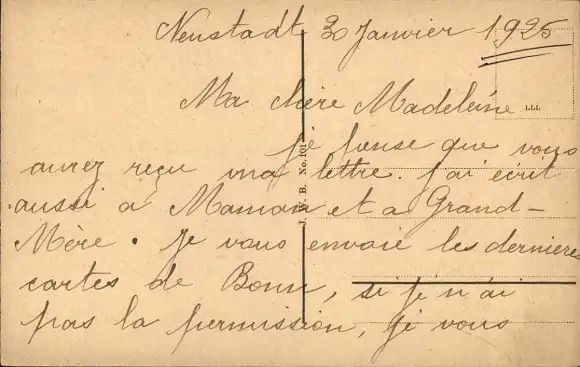 Neustadt 30 Janvier 1925
Ma chère Madeleine
je pense que vous
aurez reçu ma lettre. j'ai écrit
aussi à Maman et a Grand-
Mère. Je vous envoie les dernieres
cartes de Bonn, si je n'ai
pas la permission, je vous
J. W. B. No. 101
LLL